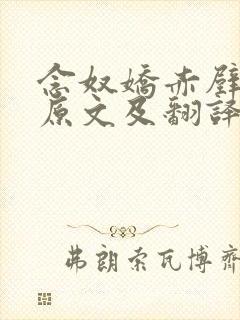 念奴嬌赤壁
原文及翻譯
弗朗索瓦博齊